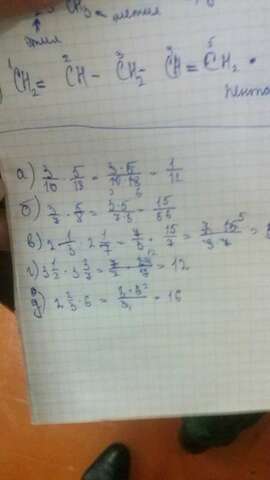 CH₃ метил
этил
¹CH₂ = ²CH - ³CH₂ - ³CH = ⁵CH₂ ·
пента
а) 3/10 · 5/18 = 3·5/10·18 = 1/12
б) 3/7 · 5/8 = 3·5/7·8 = 15/56
в) 2 1/3 · 2 1/7 = 7/3 · 15/7 = 7 · 15/3 · 7 =
г) 3 1/2 · 3 3/7 = 7/2 · 24/7 = 12
д) 2 2/3 · 6 = = 16